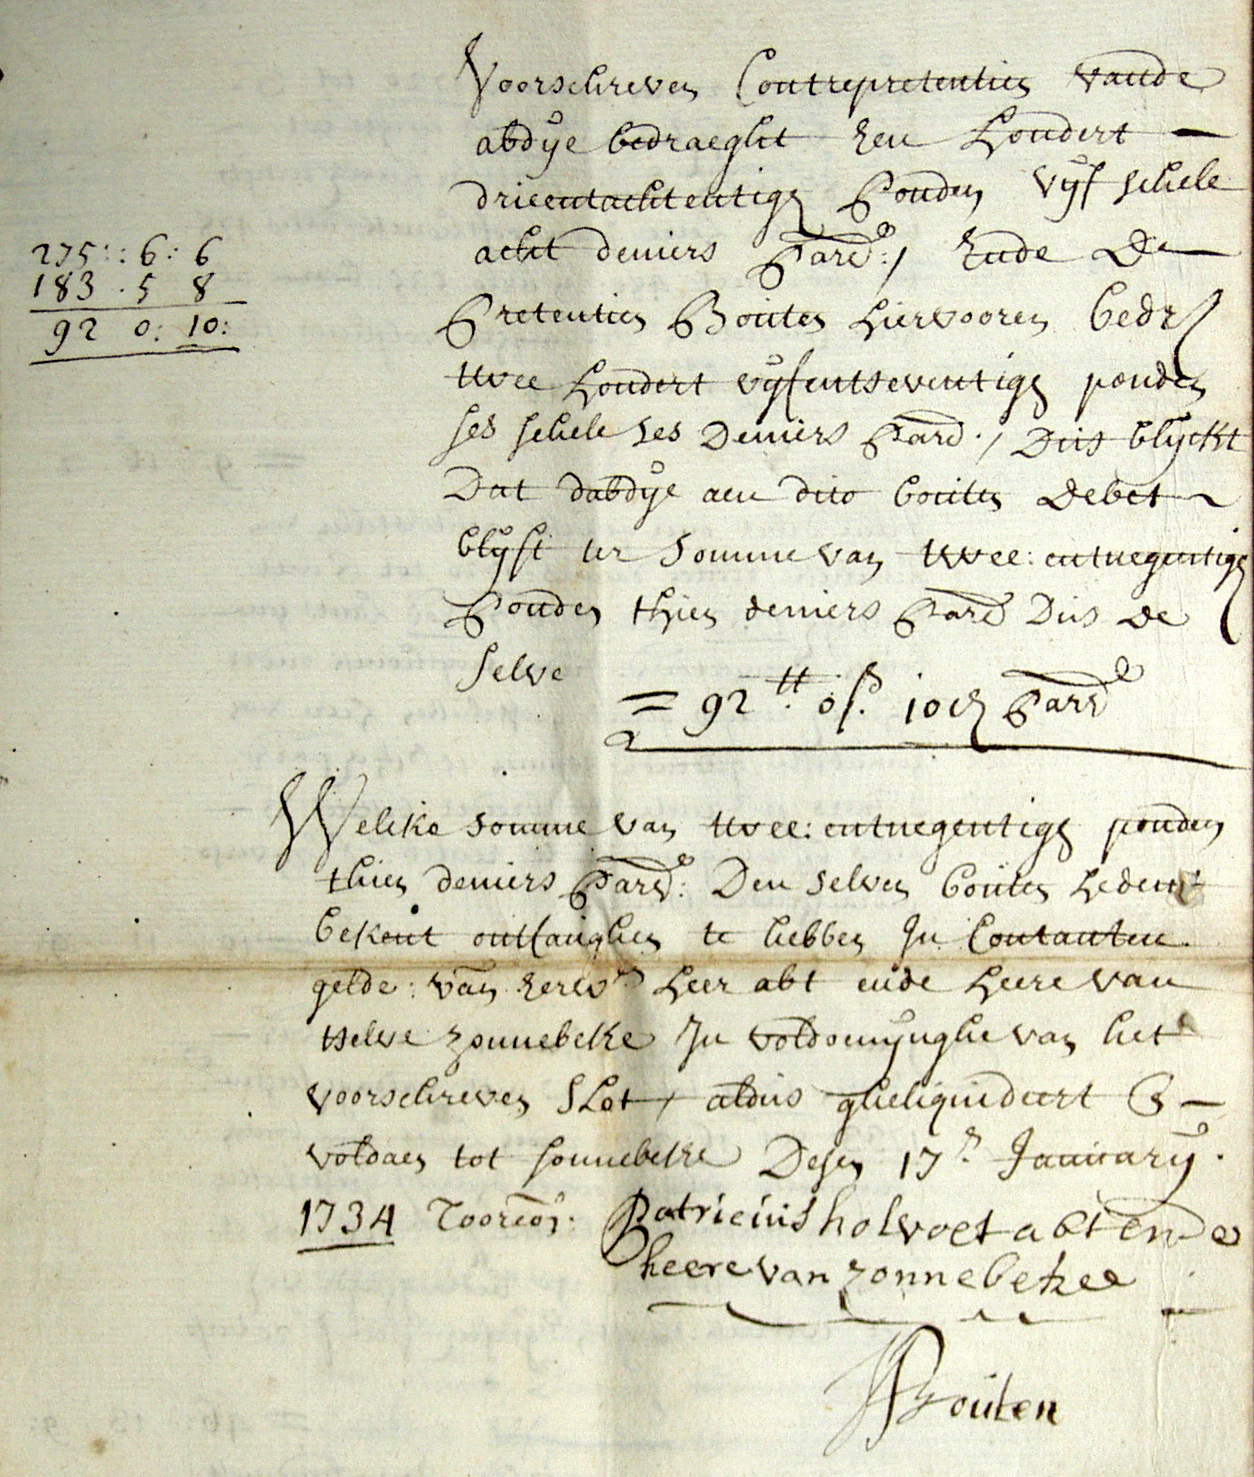 Voorschreven Contrepretentien vande
abdÿe bedraeght een hondert –
drieentachtentigh Ponden vÿf schele
275 : : 6 : 6
acht deniers Pard: / Ende De
183 . 5 8
Pretentien Bouten hiervooren bedr
92 0 : 10 :
twee hondert vÿfentseventigh ponden
ses schele ses Deniers Pard . / Dus blÿckt
Dat dabdÿe aen dito bouten debet
blÿft ter somme van twee : entnegentigh
Ponden thien deniers Pard Dus de
selve
= 92 tt. 0 s. 10 d Pard
Welcke somme van twee : entnegentigh ponden
thien deniers Pard : Den selven bouten hedent
bekent ontfanghen te hebben In Contanten .
gelde : van eerw. heer abt ende heere van
tselve zonnebeke In voldoenÿnghe van het
voorschreven Slot / aldus gheliquideert &
voldaen tot sonnebeke Desen 17.e Januarÿ .
1734 Toorcon:
Patricius holvoet abt ende
heere van zonnebeke
Bouten